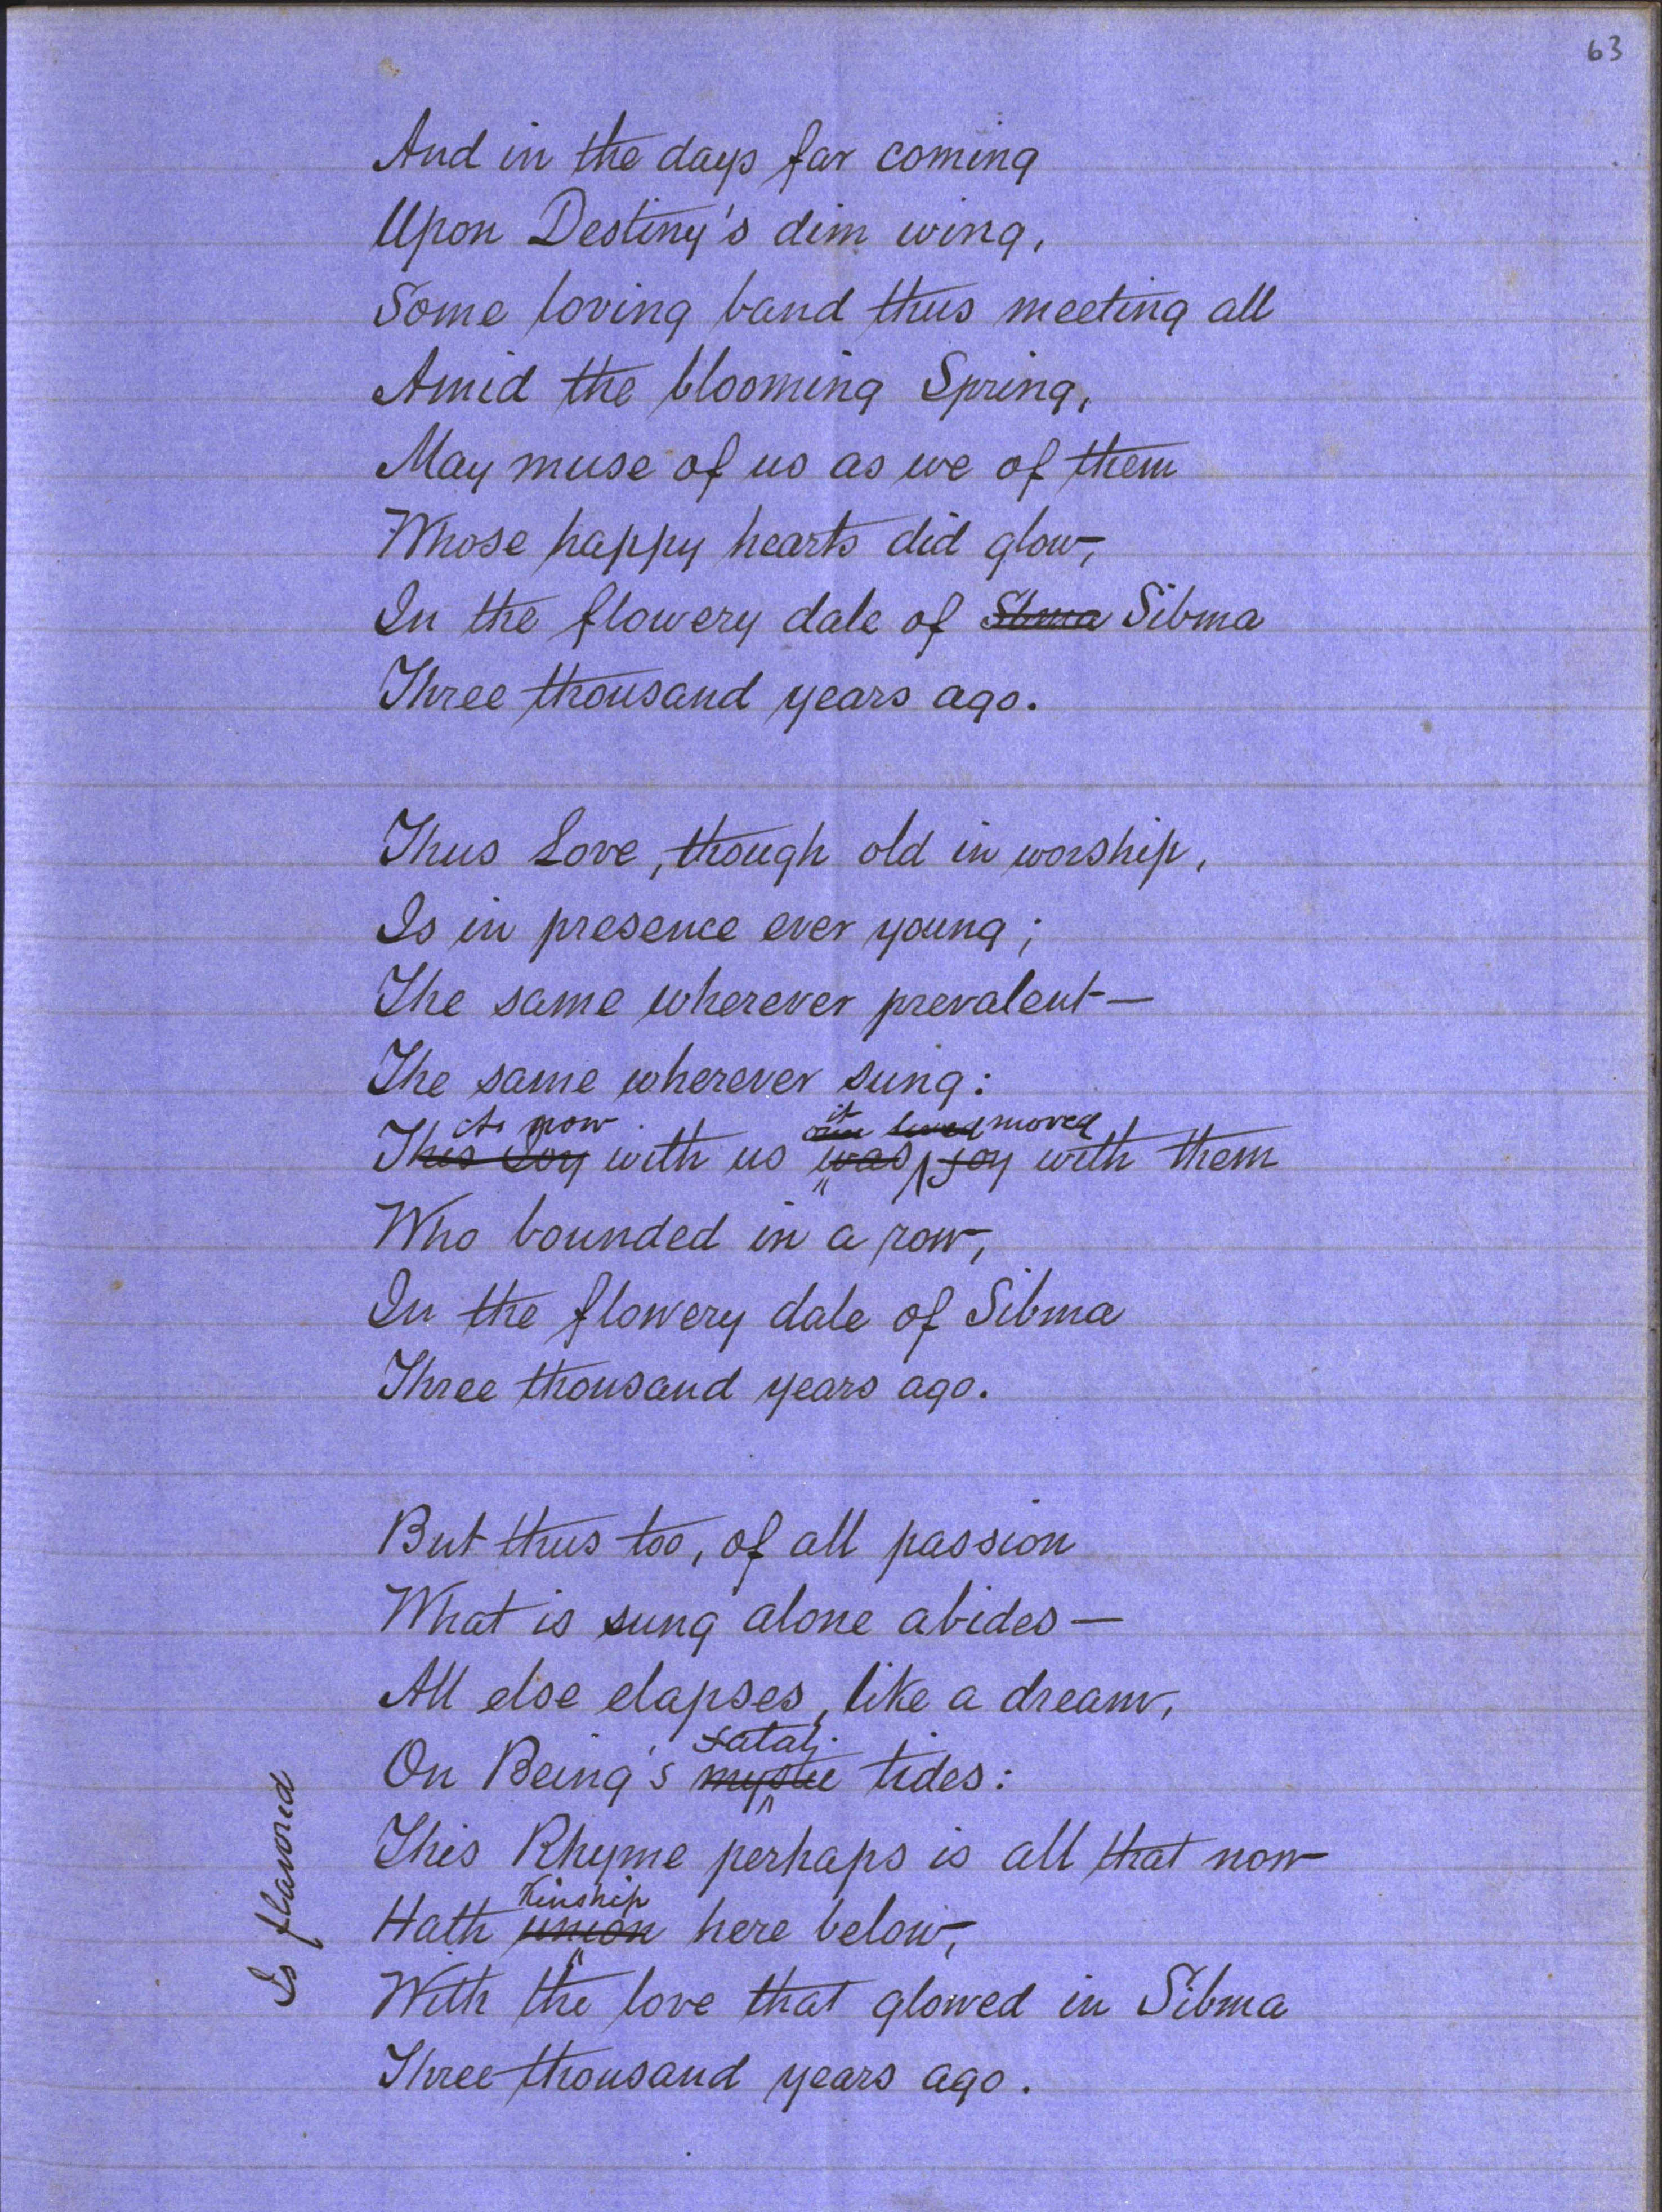 63
And in the days far coming
Upon Destiny's dim wing,
Some loving band thus meeting all
Amid the blooming Spring,
May muse of us as we of them
Whose happy hearts did glow,
In the flowery dale of Sbma Sibma
Three thousand years ago.
Thus Love, though old in worship,
Is in presence ever young;
The same wherever prevalent—
The same wherever sung:
As now it lived moved
This Joy with us was joy with them
Who bounded in a row,
In the flowery dale of Sibma
Three thousand years ago.
But thus too, of all passion
What is sung alone abides—
All else elapses, like a dream,
fatal
On Being's mystic tides:
This Rhyme perhaps is all that now
Kinship
Hath union here below,
With the love that glowed in Sibma
Three thousand years ago.
Is flavored